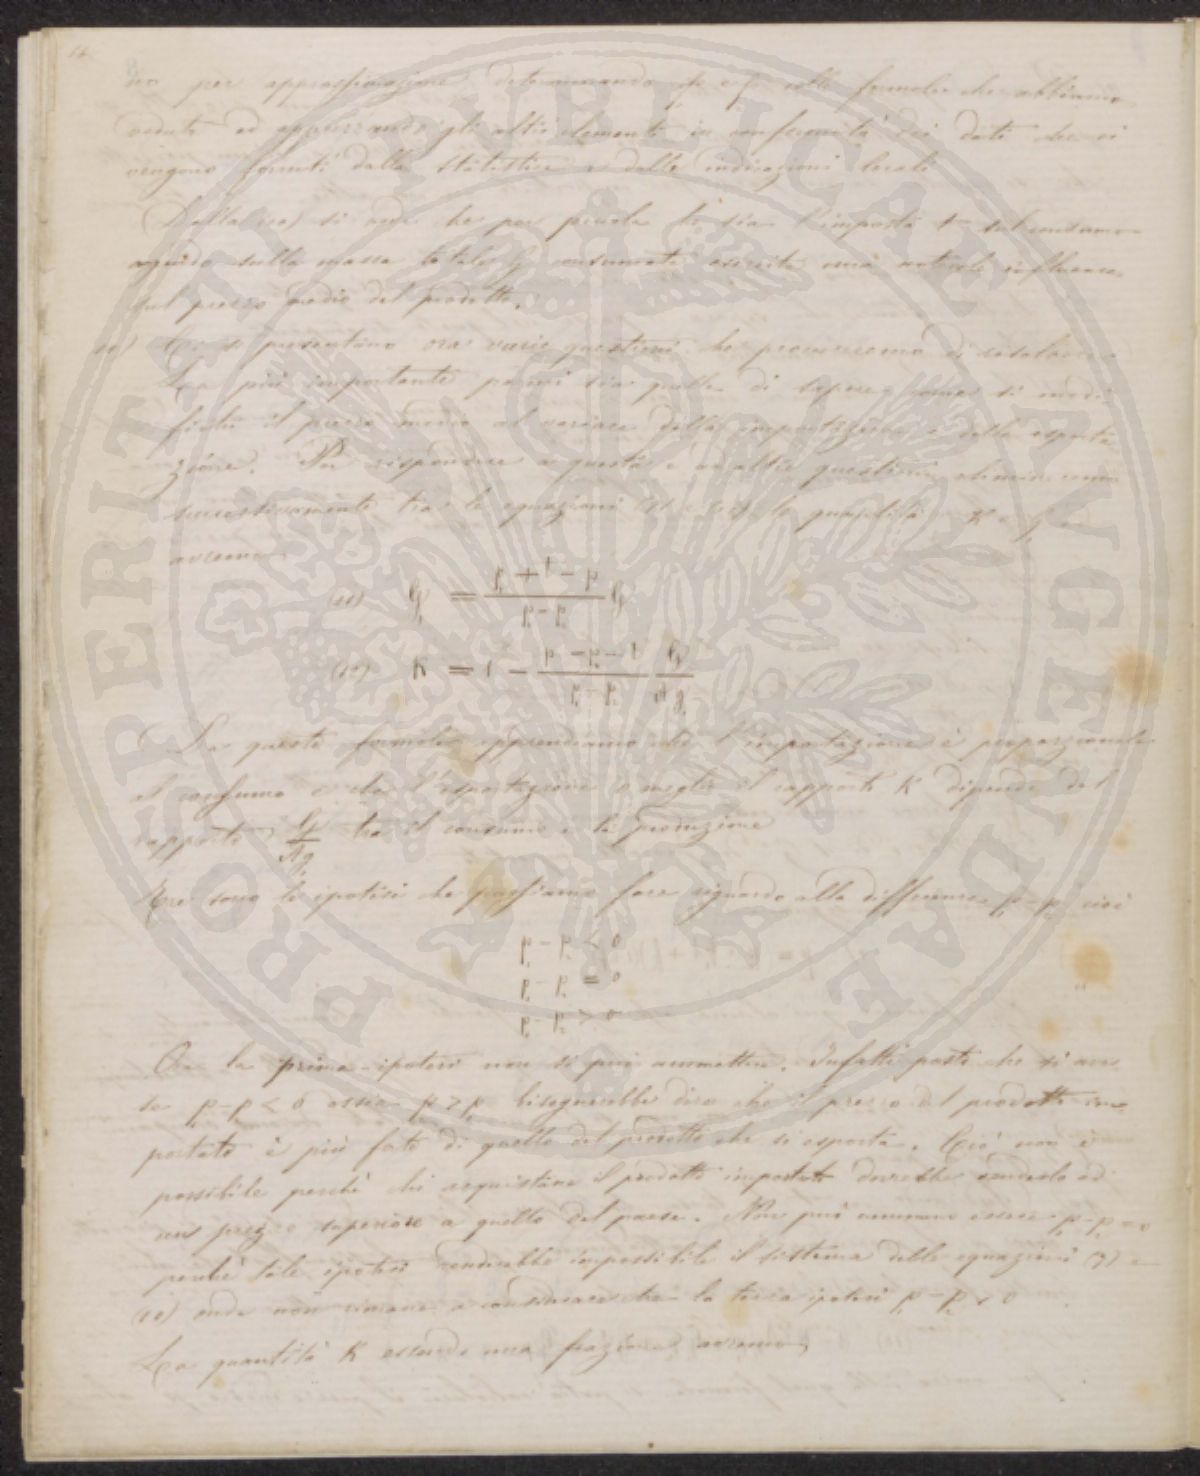 14
per approssimazione determinando p e p colle formole che abbiamo
vedute ed apprezzando gli altri elementi in conformità dei dati che ci
vengono forniti dalla statistica e dalle indicazioni locali
Dalla (10) si vede che per piccola che sia l'imposta t sul consumo
agendo sulla massa totale G consumata esercita una notevole influenza
sul prezzo medio del prodotto.
10) Ci si presentano ora varie questioni che procureremo di risolvere
La più importante parmi sia quella di sapere come si modi
fichi il prezzo medio al variare della importazione e della esporta
zione. Per rispondere a questa e ad altre questioni elimineremo
successivamente tra le equazioni e le quantità K e G₁ e
avremo
(11) G₁ = (p₂ + t − p) / (p₁ − p₂) G
(12) K = 1 − (p₁ − p₂ − t) / (p₁ − p₂) G / Ag₁
Da queste formole apprendiamo che l'importazione è proporzionale
al consumo e che l'esportazione o meglio il rapporto K dipende dal
rapporto G / Ag₁ tra il consumo e la produzione
Tre sono le ipotesi che possiamo fare riguardo alla differenza p₁ − p₂ cioè
p₁ − p₂ < 0
p₁ − p₂ = 0
p₁ − p₂ > 0
Ora la prima ipotesi non si può ammettere. Infatti posto che si aves
se p₁ − p₂ < 0 ossia p₂ > p₁ bisognerebbe dire che il prezzo del prodotto im
portato è più forte di quello del prodotto che si esporta. Ciò non è
possibile perchè chi acquistava il prodotto importato dovrebbe venderlo ad
un prezzo superiore a quello del paese. Non può nemmeno essere p₁ − p₂ = 0
perchè tale ipotesi renderebbe impossibile il sistema delle equazioni (9) e
(10) onde non rimane a considerare che la terza ipotesi p₁ − p₂ > 0
La quantità K essendo una frazione avremo
PROSPERITATI PVBLICAE AVGENDAE